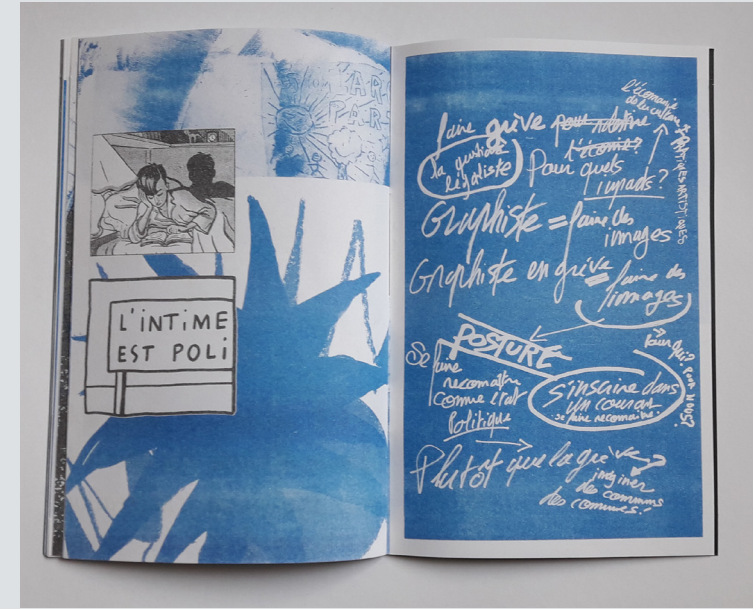 L'INTIME
EST POLI
faire grève
l'économie
de la culture
la question
légaliste
Pour quels
impacts?
Graphiste = faire des
images
Graphiste en grève = faire des
images
POSTURE
Pour qui? POUR NOUS?
Se faire
reconnaître
comme état
Politique
s'inscrire dans
un courant
se faire reconnaître
Plutôt que la grève
imaginer
des communs
des communes!